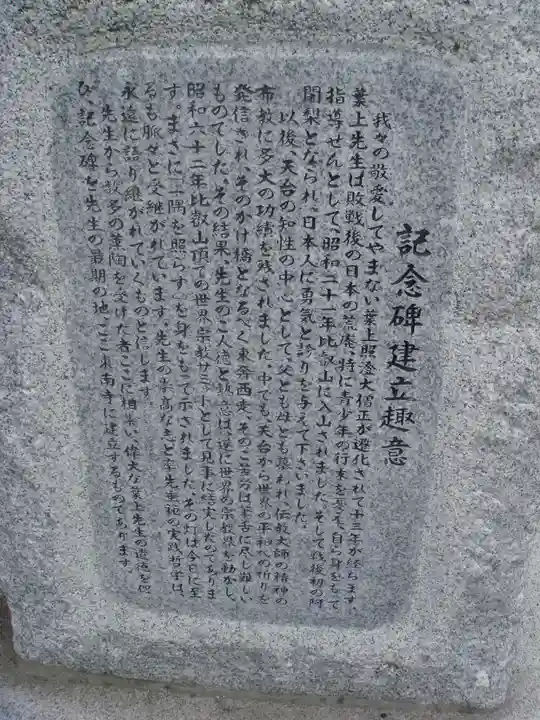 記念碑建立趣意
我々の敬愛してやまない葉上照澄大僧正が遷化されて十三年が経ちます。
葉上先生は敗戦後の日本の荒廃、特に青少年の行末を憂え、自ら身をもって
指導せんとして、昭和二十一年比叡山に入山されました。そして戦後初の阿
闍梨となられ、日本人に勇気と誇りを与えて下さいました。
以後、天台の知性の中心として、父とも母とも慕われ、伝教大師の精神の
布教に多大の功績を残されました。中でも、天台から世界の平和への祈りを
発信され、そのかけ橋となるべく東奔西走、そのご苦労は筆舌に尽し難い
ものでした。その結果、先生のご人徳と熱意は、遂に世界の宗教界を動かし、
昭和六十二年比叡山頂での世界宗教サミットとして見事に結実したのでありま
す。まさに「一隅を照らす」を身をもって示されました。その灯は今日に至
るも脈々と受継がれています。先生の崇高な志と率先垂範の実践哲学は、
永遠に語り継がれていくものと信じます。
先生から数多の薫陶を受けた者ここに相集い、偉大な葉上先生の遺徳を偲
び、記念碑を先生の最期の地ここ東南寺に建立するものであります。